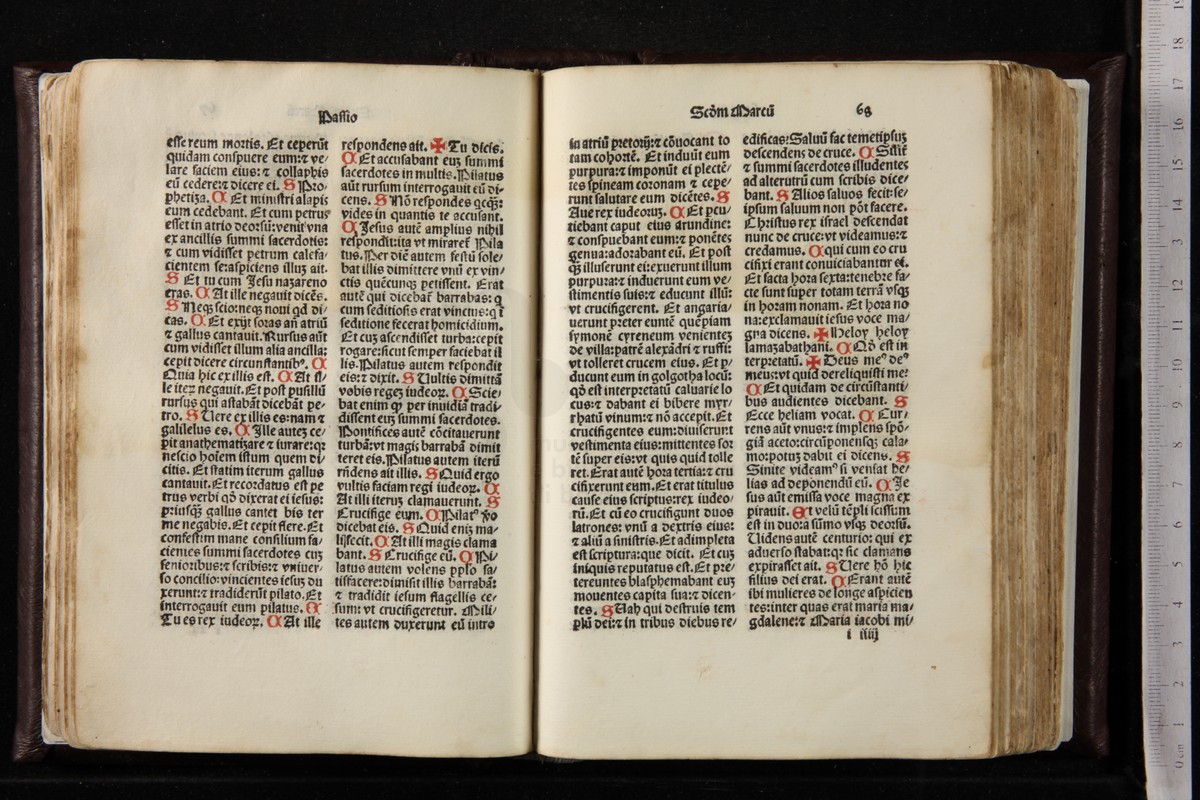 Passio
esse reum mortis. Et ceperūt
quidam conspuere eum: ⁊ ve⸗
lare faciem eius: ⁊ collaphis
eū cedere: ⁊ dicere ei. S Pro⸗
phetiza. C Et ministri alapis
eum cedebant. Et cum petrus
esset in atrio deorsū: venit vna
ex ancillis summi sacerdotis:
⁊ cum vidisset petrum calefa⸗
cientem se: aspiciens illuꝫ ait.
S Et tu cum Jesu nazareno
eras. C At ille negauit dicēs.
S Neqꝫ scio: neqꝫ noui qd di⸗
cas. C Et exijt foras añ atriū
⁊ gallus cantauit. Rursus aūt
cum vidisset illum alia ancilla:
cepit dicere circunstantibꝰ. C
Quia hic ex illis est. C At il⸗
le iteꝝ negauit. Et post pusillū
rursus qui astabāt dicebāt pe⸗
tro. S Uere ex illis es: nam ⁊
galileius es. C Ille auteꝫ ce⸗
pit anathematizare ⁊ iurare: qꝛ
nescio hoīem istum quem di⸗
citis. Et statim iterum gallus
cantauit. Et recordatus est pe⸗
trus verbi qď dixerat ei iesus:
priusqꝫ gallus cantet bis ter
me negabis. Et cepit flere. Et
confestim mane consilium fa⸗
cientes summi sacerdotes cuꝫ
senioribus: ⁊ scribis: ⁊ vniuer⸗
so concilio: vincientes iesuꝫ du
xerunt: ⁊ tradiderūt pilato. Et
interrogauit eum pilatus. S
Tu es rex iudeoꝝ. C At ille
respondens ait. ✠ Tu dicis.
C Et accusabant euꝫ summi
sacerdotes in multis. Pilatus
aūt rursum interrogauit eū di⸗
cens. S Nō respondes qcꝙꝫ:
vides in quantis te accusant.
C Jesus autē amplius nihil
respondit: ita vt miraret᷑ Pila
tus. Per diē autem festū sole⸗
bat illis dimittere vnū ex vin⸗
ctis quēcunqꝫ petissent. Erat
autē qui dicebat᷑ barrabas: q
cum seditiosis erat vinctus: q ī
seditione fecerat homicidium.
Et cuꝫ ascendisset turba: cepit
rogare: sicut semper faciebat il
lis. Pilatus autem respondit
eis: ⁊ dixit. S Uultis dimittā
vobis regeꝫ iudeoꝝ. C Scie⸗
bat enim ꝙ per inuidiā tradi⸗
dissent euꝫ summi sacerdotes.
Pontifices autē cōcitauerunt
turbā: vt magis barrabā dimit
teret eis. Pilatus autem iterū
rn̄dens ait illis. S Quid ergo
vultis faciam regi iudeoꝝ. C
At illi iteruꝫ clamauerunt. S
Crucifige eum. C Pilatꝰ ꝟo
dicebat eis. S Quid eniꝫ ma⸗
li fecit. C At illi magis clama
bant. S Crucifige eū. C Pi⸗
latus autem volens pplo sa⸗
tisfacere: dimisit illis barrabā:
⁊ tradidit iesum flagellis ce⸗
sum: vt crucifigeretur. Mili⸗
tes autem duxerunt eū intro
Scḋm Marcū 68
in atriū pretorij: ⁊ cōuocant to
tam cohortē. Et induūt eum
purpura: ⁊ imponūt ei plectē⸗
tes spineam coronam ⁊ cepe⸗
runt salutare eum dicētes. S
Aue rex iudeoruꝫ. C Et pcu⸗
tiebant caput eius arundine:
⁊ conspuebant eum: ⁊ ponētes
genua: adorabant eū. Et post
ꝙ̄ illuserunt ei: exuerunt illum
purpura: ⁊ induerunt eum ve⸗
stimentis suis: ⁊ educunt illū:
vt crucifigerent. Et angaria⸗
uerunt preter euntē quempiam
symonē cyreneum venienteꝫ
de villa: patrē alexādri ⁊ ruffi:
vt tolleret crucem eius. Et p⸗
ducunt eum in golgotha locū:
qď est interpretatū caluarie lo
cus: ⁊ dabant ei bibere myr⸗
rhatū vinum: ⁊ nō accepit. Et
crucifigentes eum: diuiserunt
vestimenta eius: mittentes sor
tē super eis: vt quis quid tolle
ret. Erat autē hora tertia: ⁊ cru
cifixerunt eum. Et erat titulus
cause eius scriptus: rex iudeo⸗
rū. Et cū eo crucifigunt duos
latrones: vnū a dextris eius:
⁊ aliū a sinistris. Et adimpleta
est scriptura: que dicit. Et cuꝫ
iniquis reputatus est. Et pre⸗
tereuntes blasphemabant euꝫ
mouentes capita sua: ⁊ dicen⸗
tes. S Uah qui destruis tem
plū dei: ⁊ in tribus diebus re⸗
edificas: Saluū fac temetipsuꝫ
descendens de cruce. C Silīr
⁊ summi sacerdotes illudentes
ad alterutrū cum scribis dice⸗
bant. S Alios saluos fecit: se⸗
ipsum saluum non pōt facere.
Christus rex israel descendat
nunc de cruce: vt videamus: ⁊
credamus. C qui cum eo cru
cifixi erant conuiciabantur ei.
Et facta hora sexta: tenebre fa⸗
cte sunt super totam terrā vsqꝫ
in horam nonam. Et hora no
na: exclamauit iesus voce ma⸗
gna dicens. ✠ Heloy heloy
lamazabathani. C Qď est in
terpretatū. ✠ Deus meꝰ deꝰ
meus: vt quid dereliquisti me:
C Et quidam de circūstanti⸗
bus audientes dicebant. S
Ecce heliam vocat. C Cur⸗
rens aūt vnus: ⁊ implens spō⸗
giā aceto: circūponensqꝫ cala⸗
mo: potuꝫ dabat ei dicens. S
Sinite videamꝰ si veniat he⸗
lias ad deponendū eū. C Je
sus aūt emissa voce magna ex
pirauit. Et velū tēpli scissum
est in duo: a sūmo vsqꝫ deorsū.
Uidens autē centurio: qui ex
aduerso stabat: qꝛ sic clamans
expirasset ait. S Uere hō hic
filius dei erat. C Erant autē
ibi mulieres de longe aspicien
tes: inter quas erat maria ma⸗
gdalene: ⁊ Maria iacobi mi⸗
i iiij